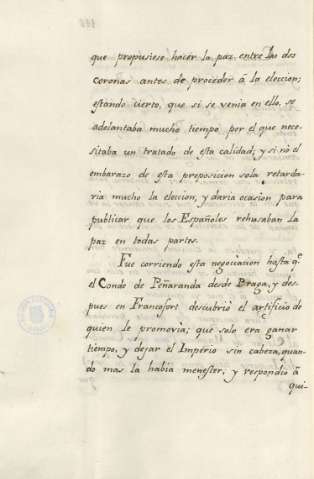 que propusiese hacer la paz entre las dos
coronas antes de proceder á la eleccion;
estando cierto, que si se venia en ello, se
adelantaba mucho tiempo por el que nece-
sitaba un tratado de esta calidad; y si nó el
embarazo de esta preposicion sola retarda-
ria mucho la eleccion, y daria ocasion para
publicar que los Españoles rehusaban la
paz en todas partes.
Fue corriendo esta negociacion hasta q.e
el Conde de Peñaranda desde Praga, y des-
pues en Francofort descubrió el artificio de
quien le promovia; que solo era ganar
tiempo, y dejar el Império sin cabeza, quan-
do mas la habia menester; y respondió á
qui-